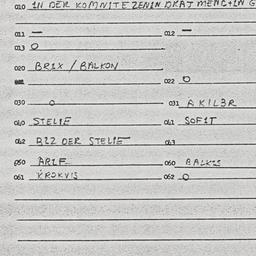 010 IN DER KOMNITEZENIN DRAT MENC+IN G
011 — 012 —
013 O
020 BRIX / BALKON
022 O
030 O 031 A KILBR
040 STELIE 041 SOFIT
042 BZZ DER STELIE 043
050 ARIF 060 BALKIS
061 KROKVIS 062 O